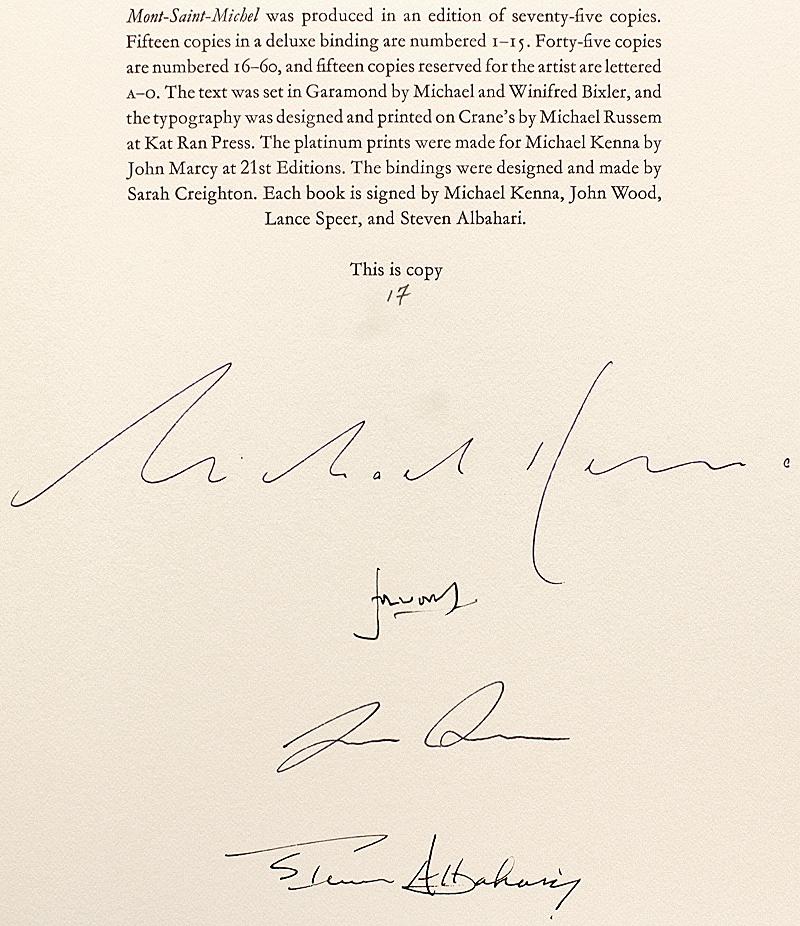 Mont-Saint-Michel was produced in an edition of seventy-five copies.
Fifteen copies in a deluxe binding are numbered 1–15. Forty-five copies
are numbered 16–60, and fifteen copies reserved for the artist are lettered
A–O. The text was set in Garamond by Michael and Winifred Bixler, and
the typography was designed and printed on Crane's by Michael Russem
at Kat Ran Press. The platinum prints were made for Michael Kenna by
John Marcy at 21st Editions. The bindings were designed and made by
Sarah Creighton. Each book is signed by Michael Kenna, John Wood,
Lance Speer, and Steven Albahari.
This is copy
17
Michael Kenna
Steven Albahari